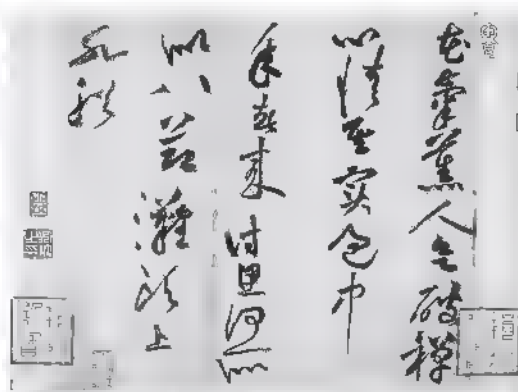 花氣薰人欲破禪
心情其實過中
年春來詩思何所
似八節灘頭上
水船